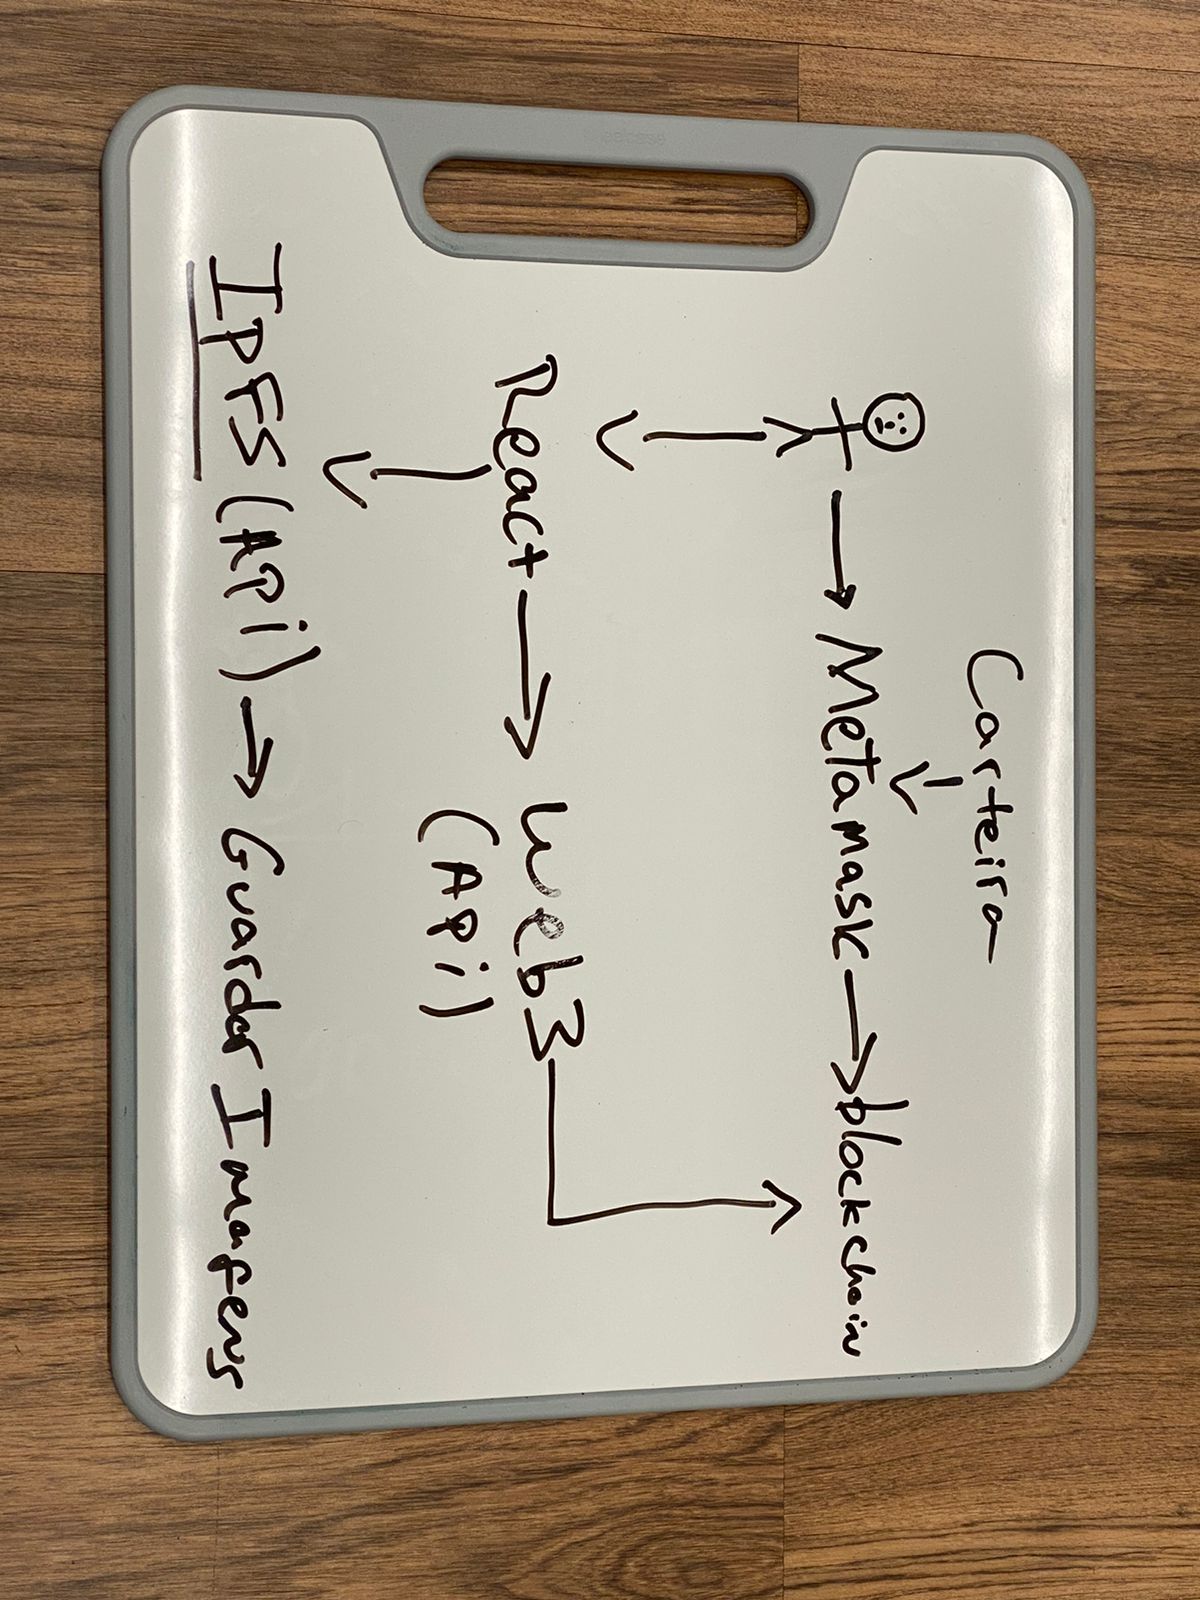 Carteira
Metamask blockchain
React Web3
(APi)
IpFS (APi) Guardar Imagens